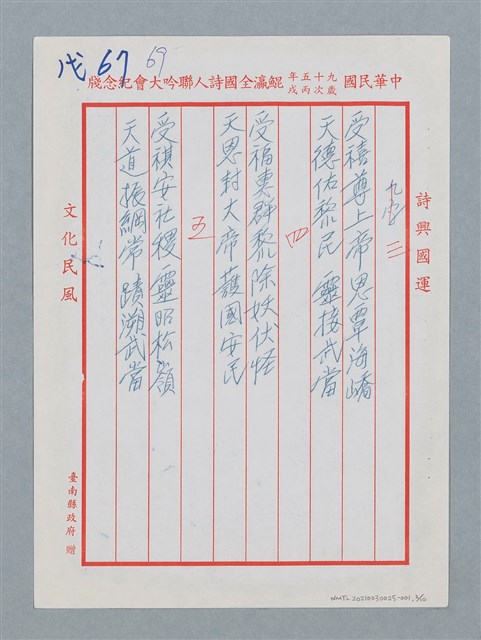 戊 67 69
中華民國九十五年歲次丙戌鯤瀛全國詩人聯吟大會紀念牋
詩興國運
三
受禧尊上帝恩覃海嶠
天德佑黎民靈接武當
四
受福惠群黎除妖伏怪
天恩封大帝護國安民
五
受祺安社稷靈昭松嶺
天道振綱常蹟溯武當
文化民風
臺南縣政府 贈
NMTL20210030025-001, 3/10